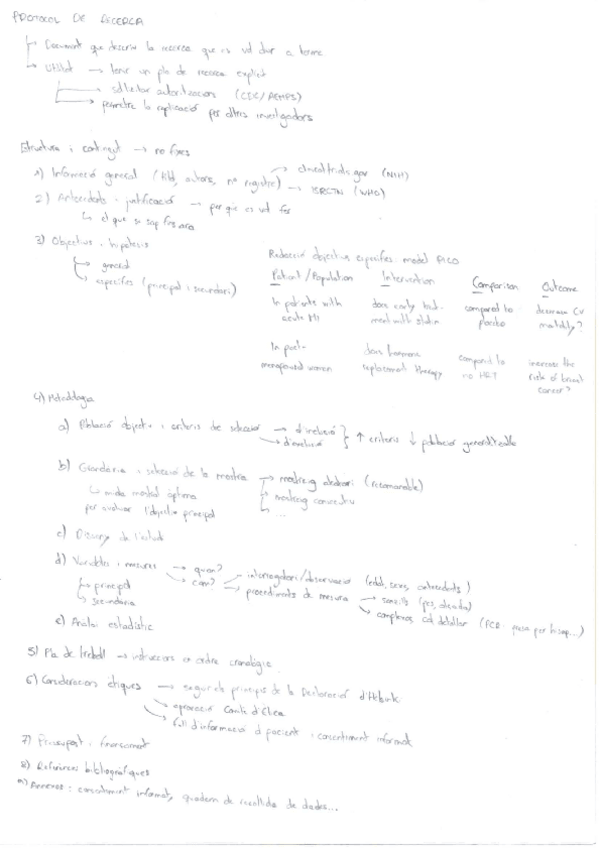 PROTOCOL DE RECERCA
Document que descriu la recerca que es vol dur a terme
Utilitat → tenir un pla de recerca explícit
→ sol·licitar autoritzacions (CEIC/AEMPS)
→ permetre la replicació per altres investigadors
Estructura i contingut → no fixes
1) Informació general (títol, autors, nº registre) → clinicaltrials.gov (NIH)
→ ISRCTN (WHO)
2) Antecedents i justificació → per què es vol fer
↳ el que se sap fins ara
3) Objectius i hipòtesis
→ general
→ específics (principal i secundari)
Redacció objectius específics: model PICO
Patient/Population Intervention Comparison Outcome
In patients with acute MI does early treatment with statin compared to placebo decrease CV mortality?
In post-menopausal women does hormone replacement therapy compared to no HRT increase the risk of breast cancer?
4) Metodologia
a) Població objectiu i criteris de selecció → d'inclusió
→ d'exclusió } ↑ criteris ↓ població generalitzable
b) Grandària i selecció de la mostra → mostreig aleatori (recomanable)
↳ mida mostral òptima → mostreig consecutiu
per avaluar l'objectiu principal → ...
c) Disseny de l'estudi
d) Variables i mesures → quan?
→ com? → interrogatori/observació (edat, sexe, antecedents)
→ procediments de mesura → senzills (pes, alçada)
→ complexos cal detallar (PCR: presa per hisop...)
→ principal
→ secundària
e) Anàlisi estadístic
5) Pla de treball → instruccions en ordre cronològic
6) Consideracions ètiques → seguir els principis de la Declaració d'Helsinki
→ aprovació Comitè d'Ètica
→ full d'informació al pacient i consentiment informat
7) Pressupost i finançament
8) Referències bibliogràfiques
9) Annexos: consentiment informat, quadern de recollida de dades...